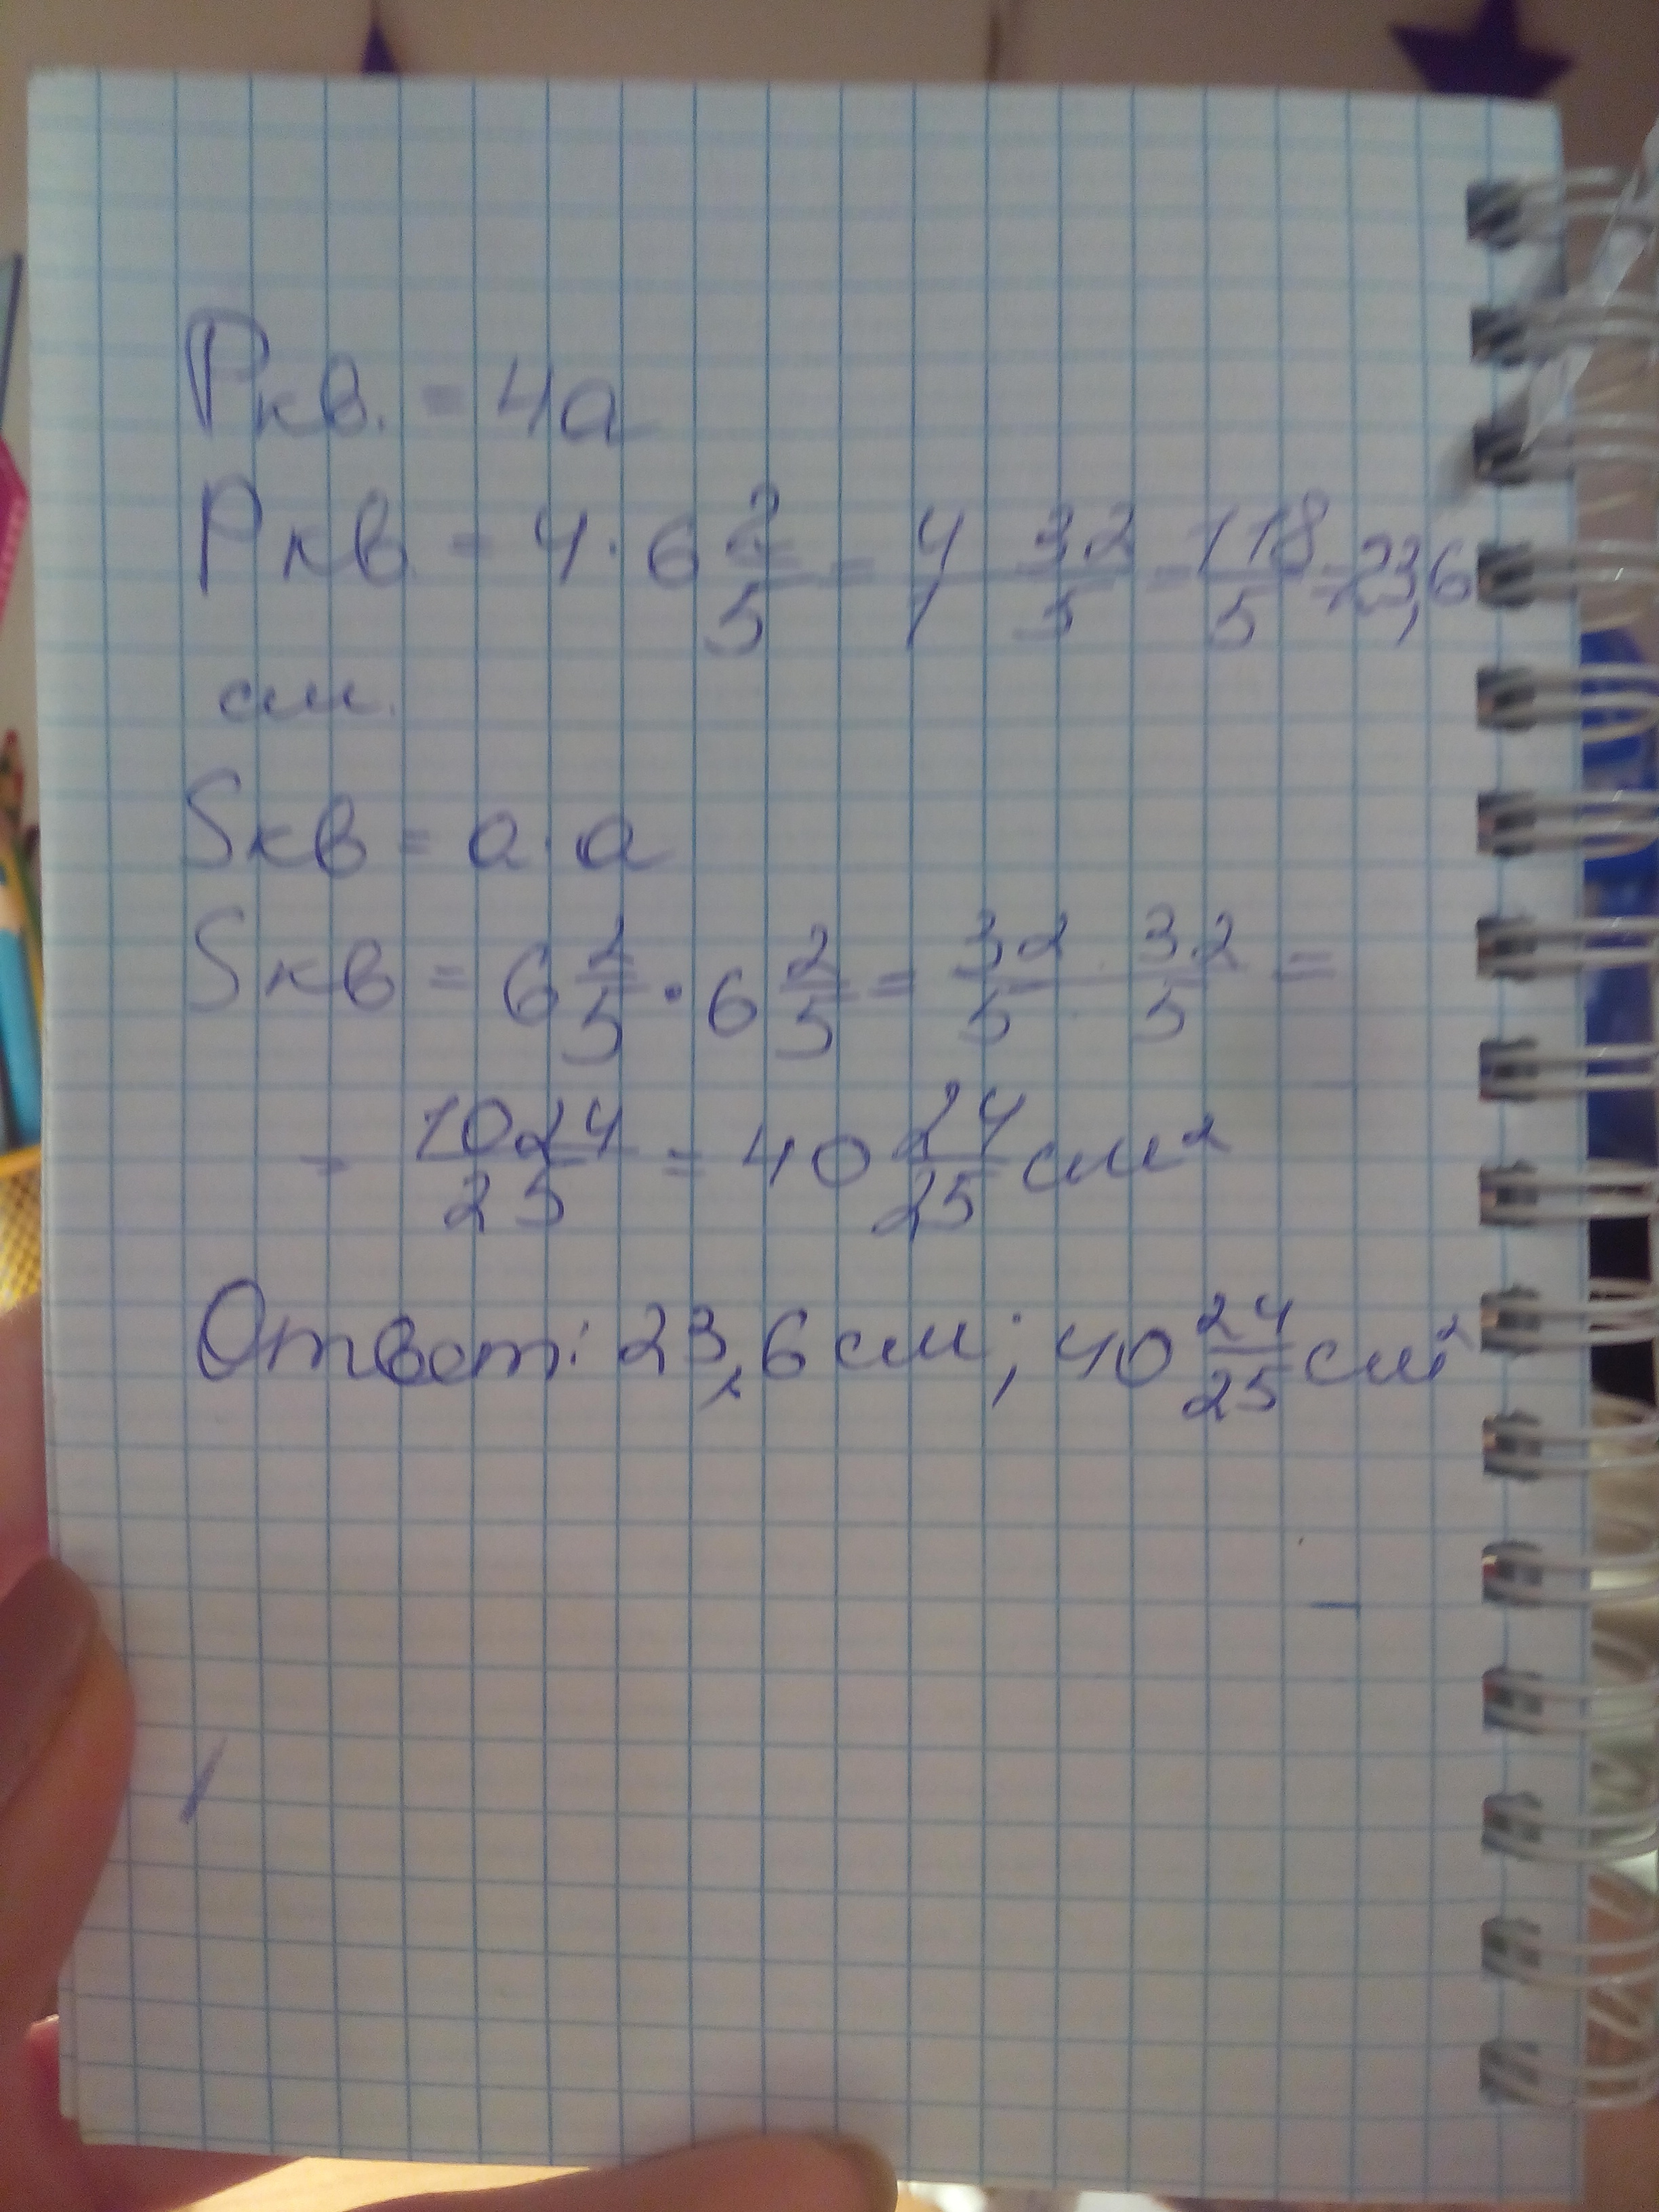 Pкв. = 4a
Pкв = 4 · 6 2/5 = 4/1 · 32/5 = 118/5 = 23,6
см.
Sкв = a · a
Sкв = 6 2/5 · 6 2/5 = 32/5 · 32/5 =
= 1024/25 = 40 24/25 см²
Ответ: 23,6 см; 40 24/25 см²